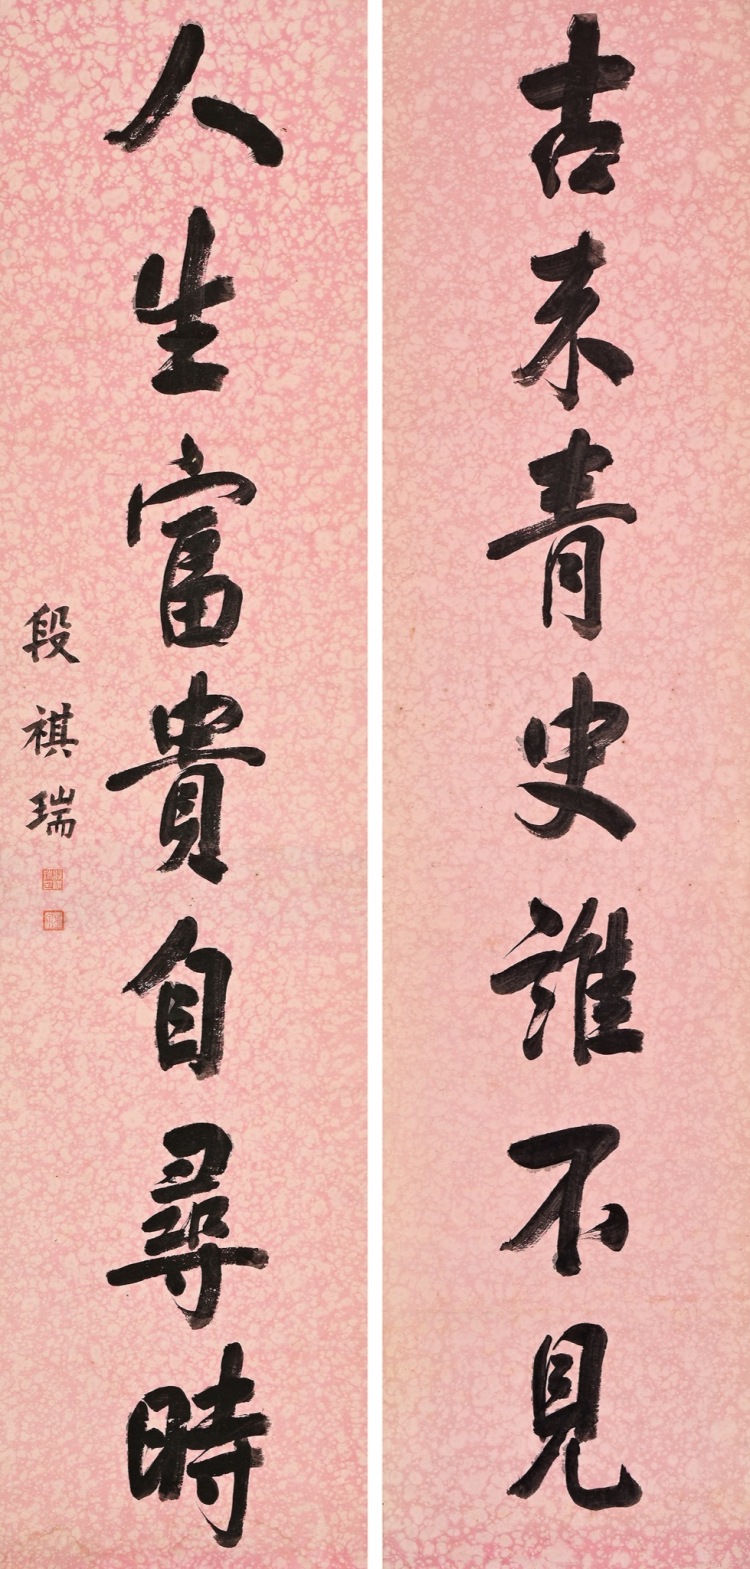 古來青史誰不見
人生富貴自尋時
段祺瑞